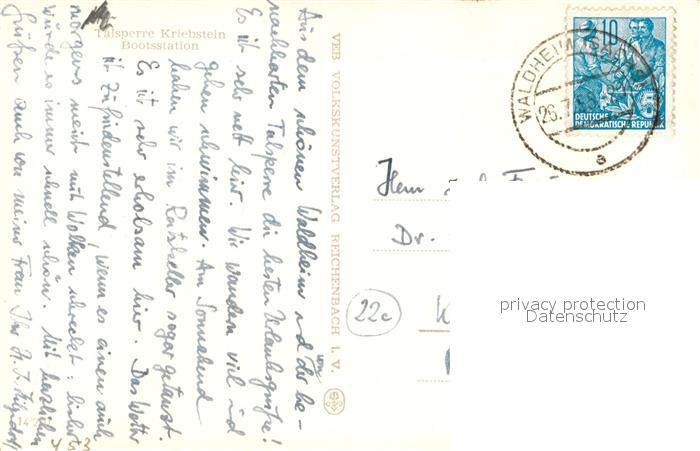 Talsperre Kriebstein
Bootsstation
Aus dem schönen Waldheim und der be-
nachbarten Talsperre die besten Urlaubsgrüße!
Es ist sehr nett hier. Wir wandern viel und
gehen schwimmen. Am Sonnabend
haben wir im Ratskeller sogar getanzt.
Es ist sehr erholsam hier. Das Wetter
ist zufriedenstellend, wenn es einen auch
morgens meist mit Wolken schreckt; bisher
wurde es immer schnell schön. Mit herzlichen
Grüßen auch von meiner Frau Ihr
VEB VOLKSKUNSTVERLAG REICHENBACH I. V.
WALDHEIM
26.7.
a
10
5
DEUTSCHE
DEMOKRATISCHE REPUBLIK
Herrn
Dr.
22c
K
privacy protection
Datenschutz